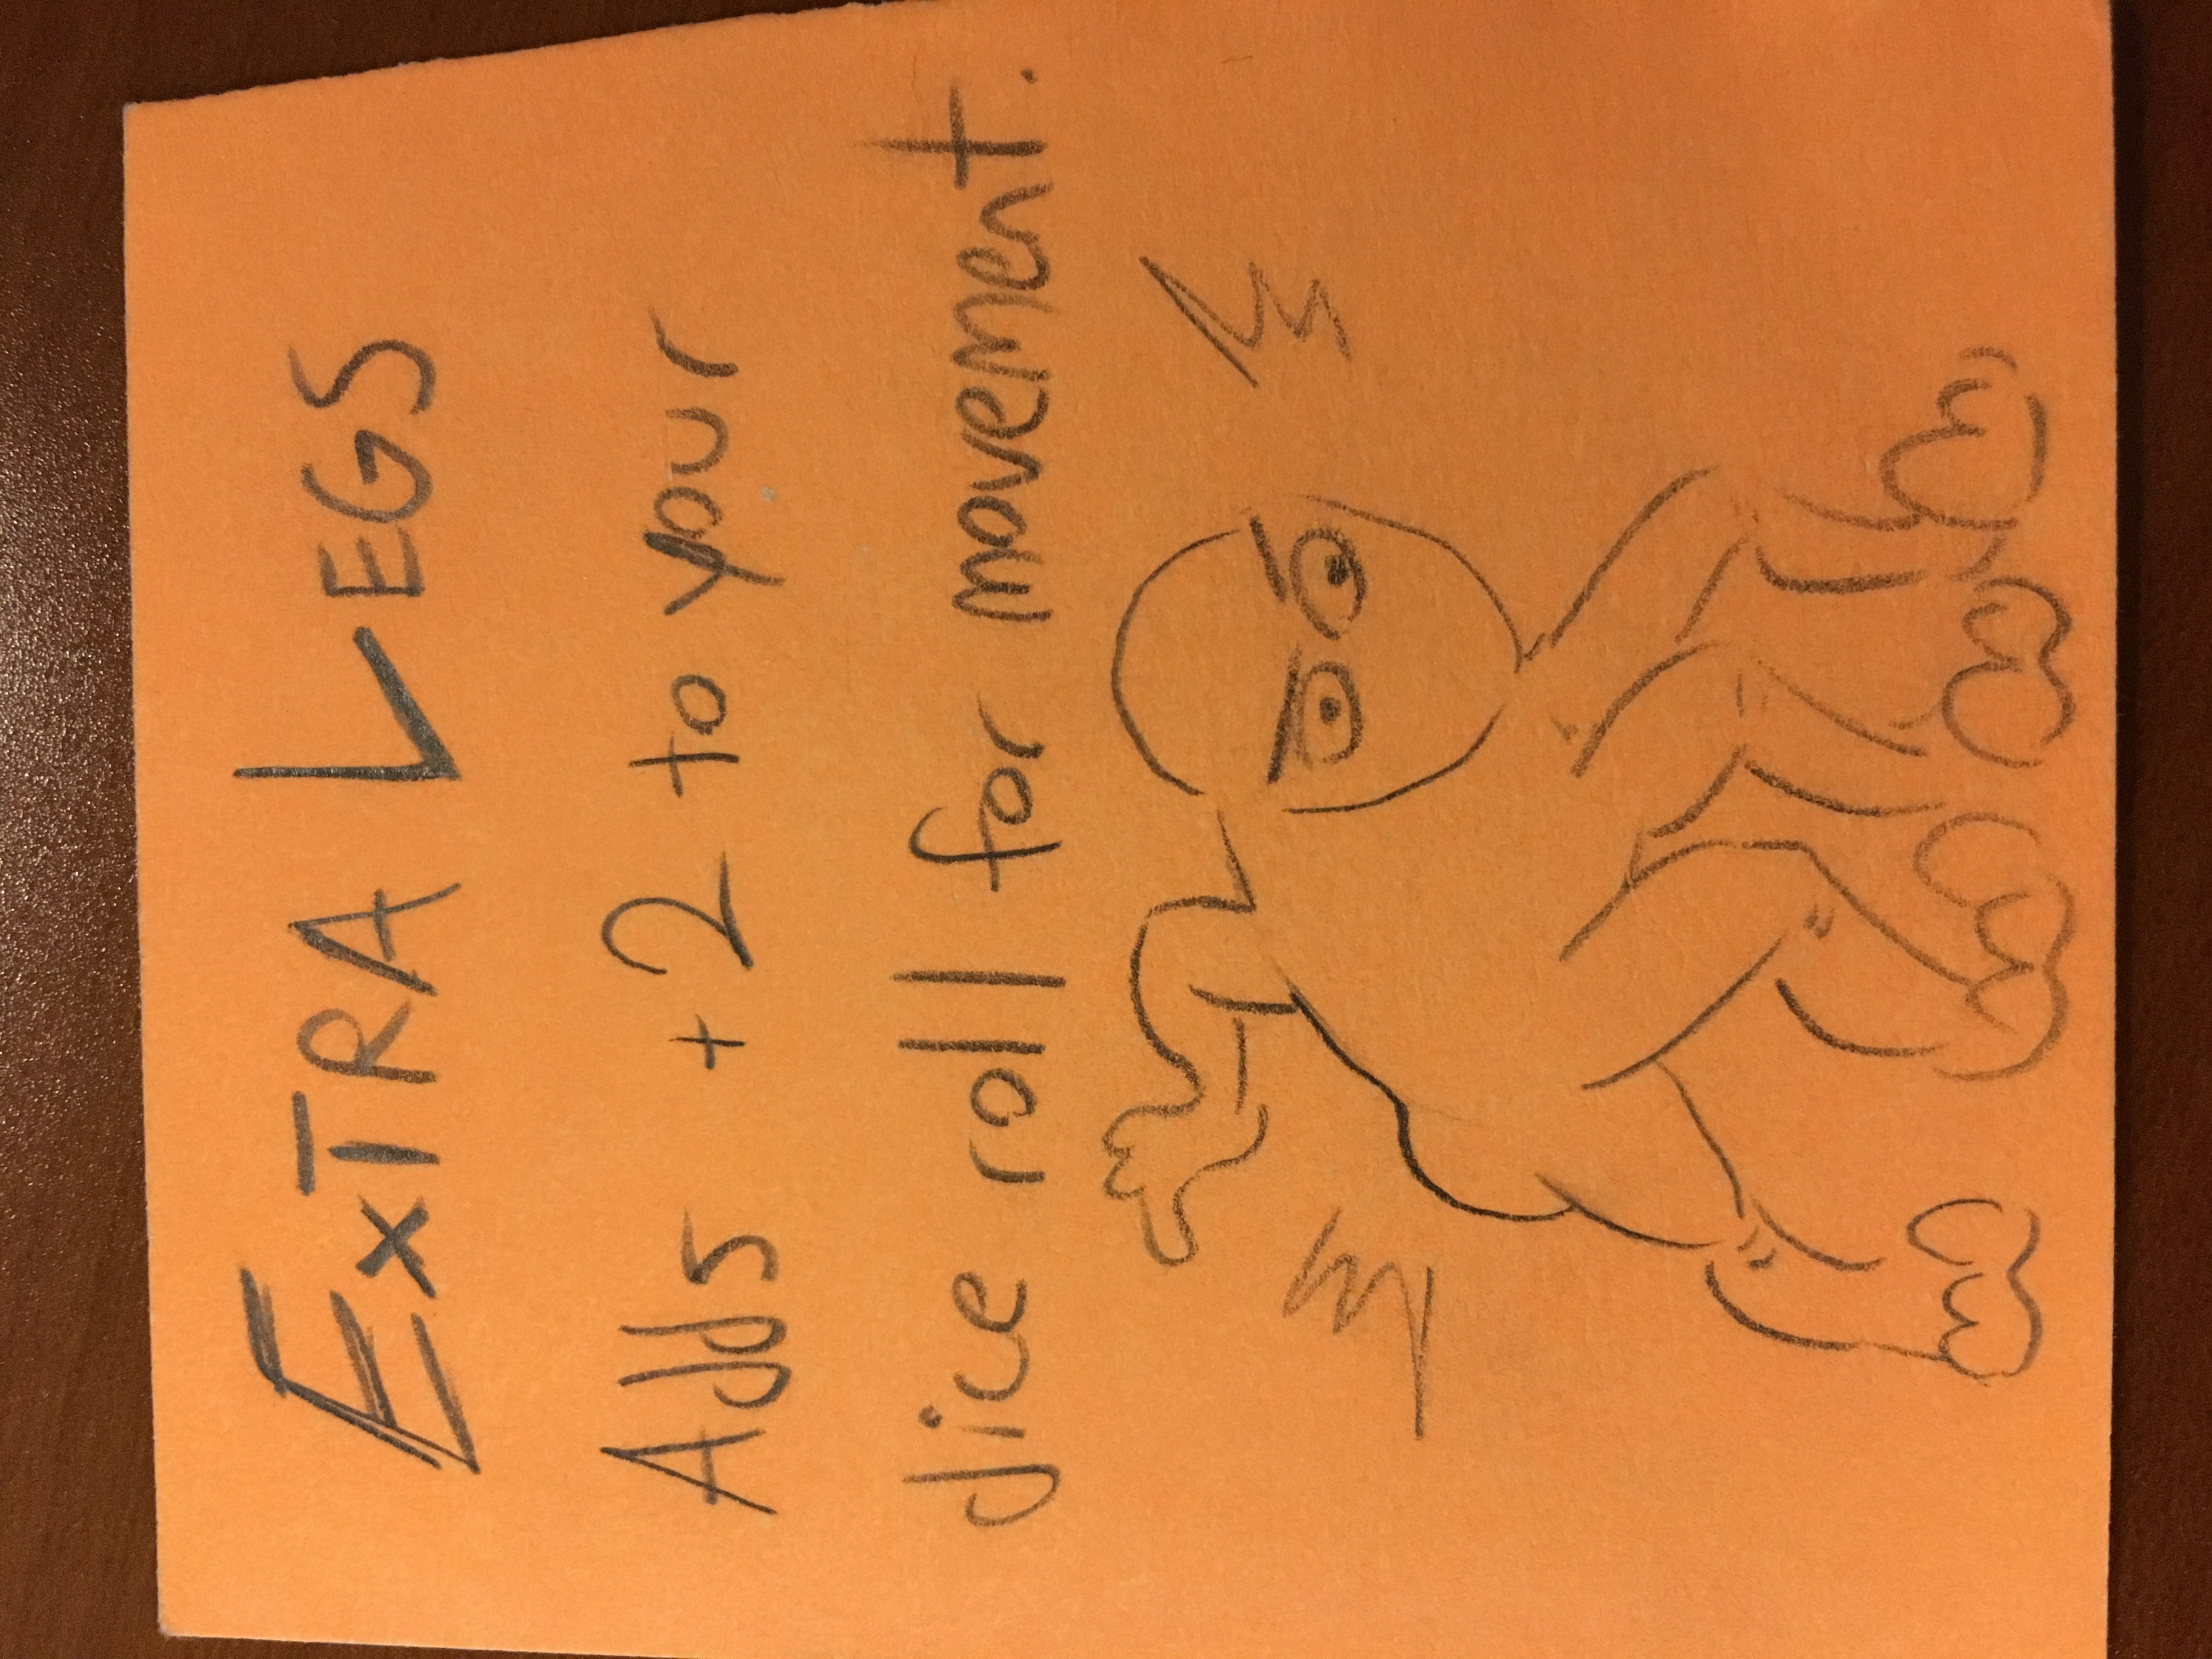 EXTRA LEGS
Adds +2 to your
dice roll for movement.